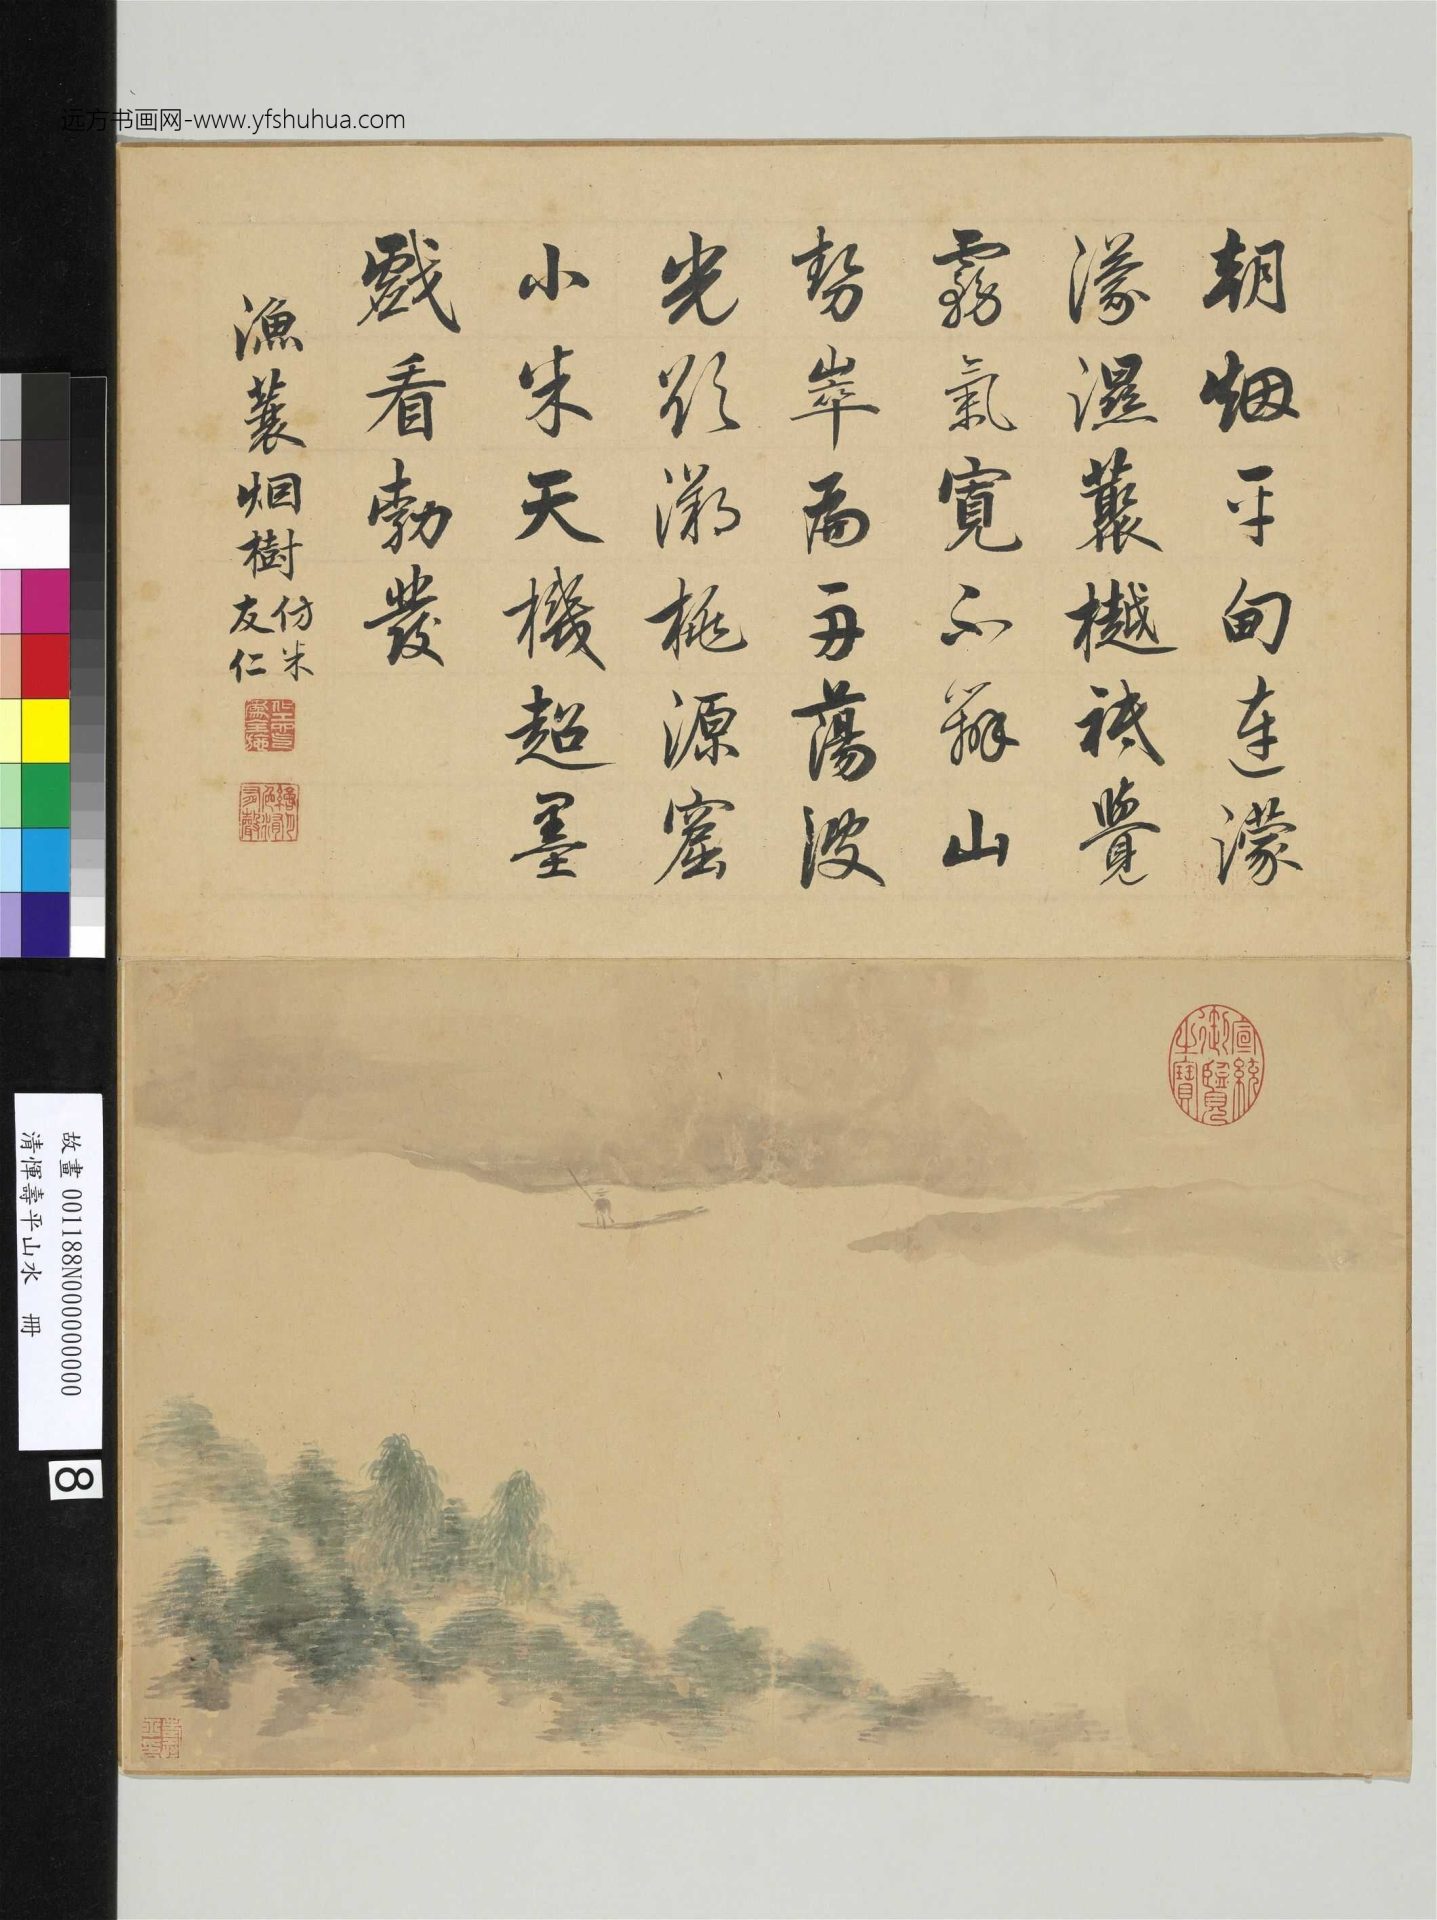 远方书画网-www.yfshuhua.com
朝烟平甸連濛
濛濕藂樾祗覺
霧氣寬不辨山
勢崒扁舟蕩波
光欲溯桃源窟
小米天機超墨
戲看勃發
漁蓑烟樹
仿米
友仁
宣統
御覽
之寶
故畫 001188N000000000
清惲壽平山水 冊
8